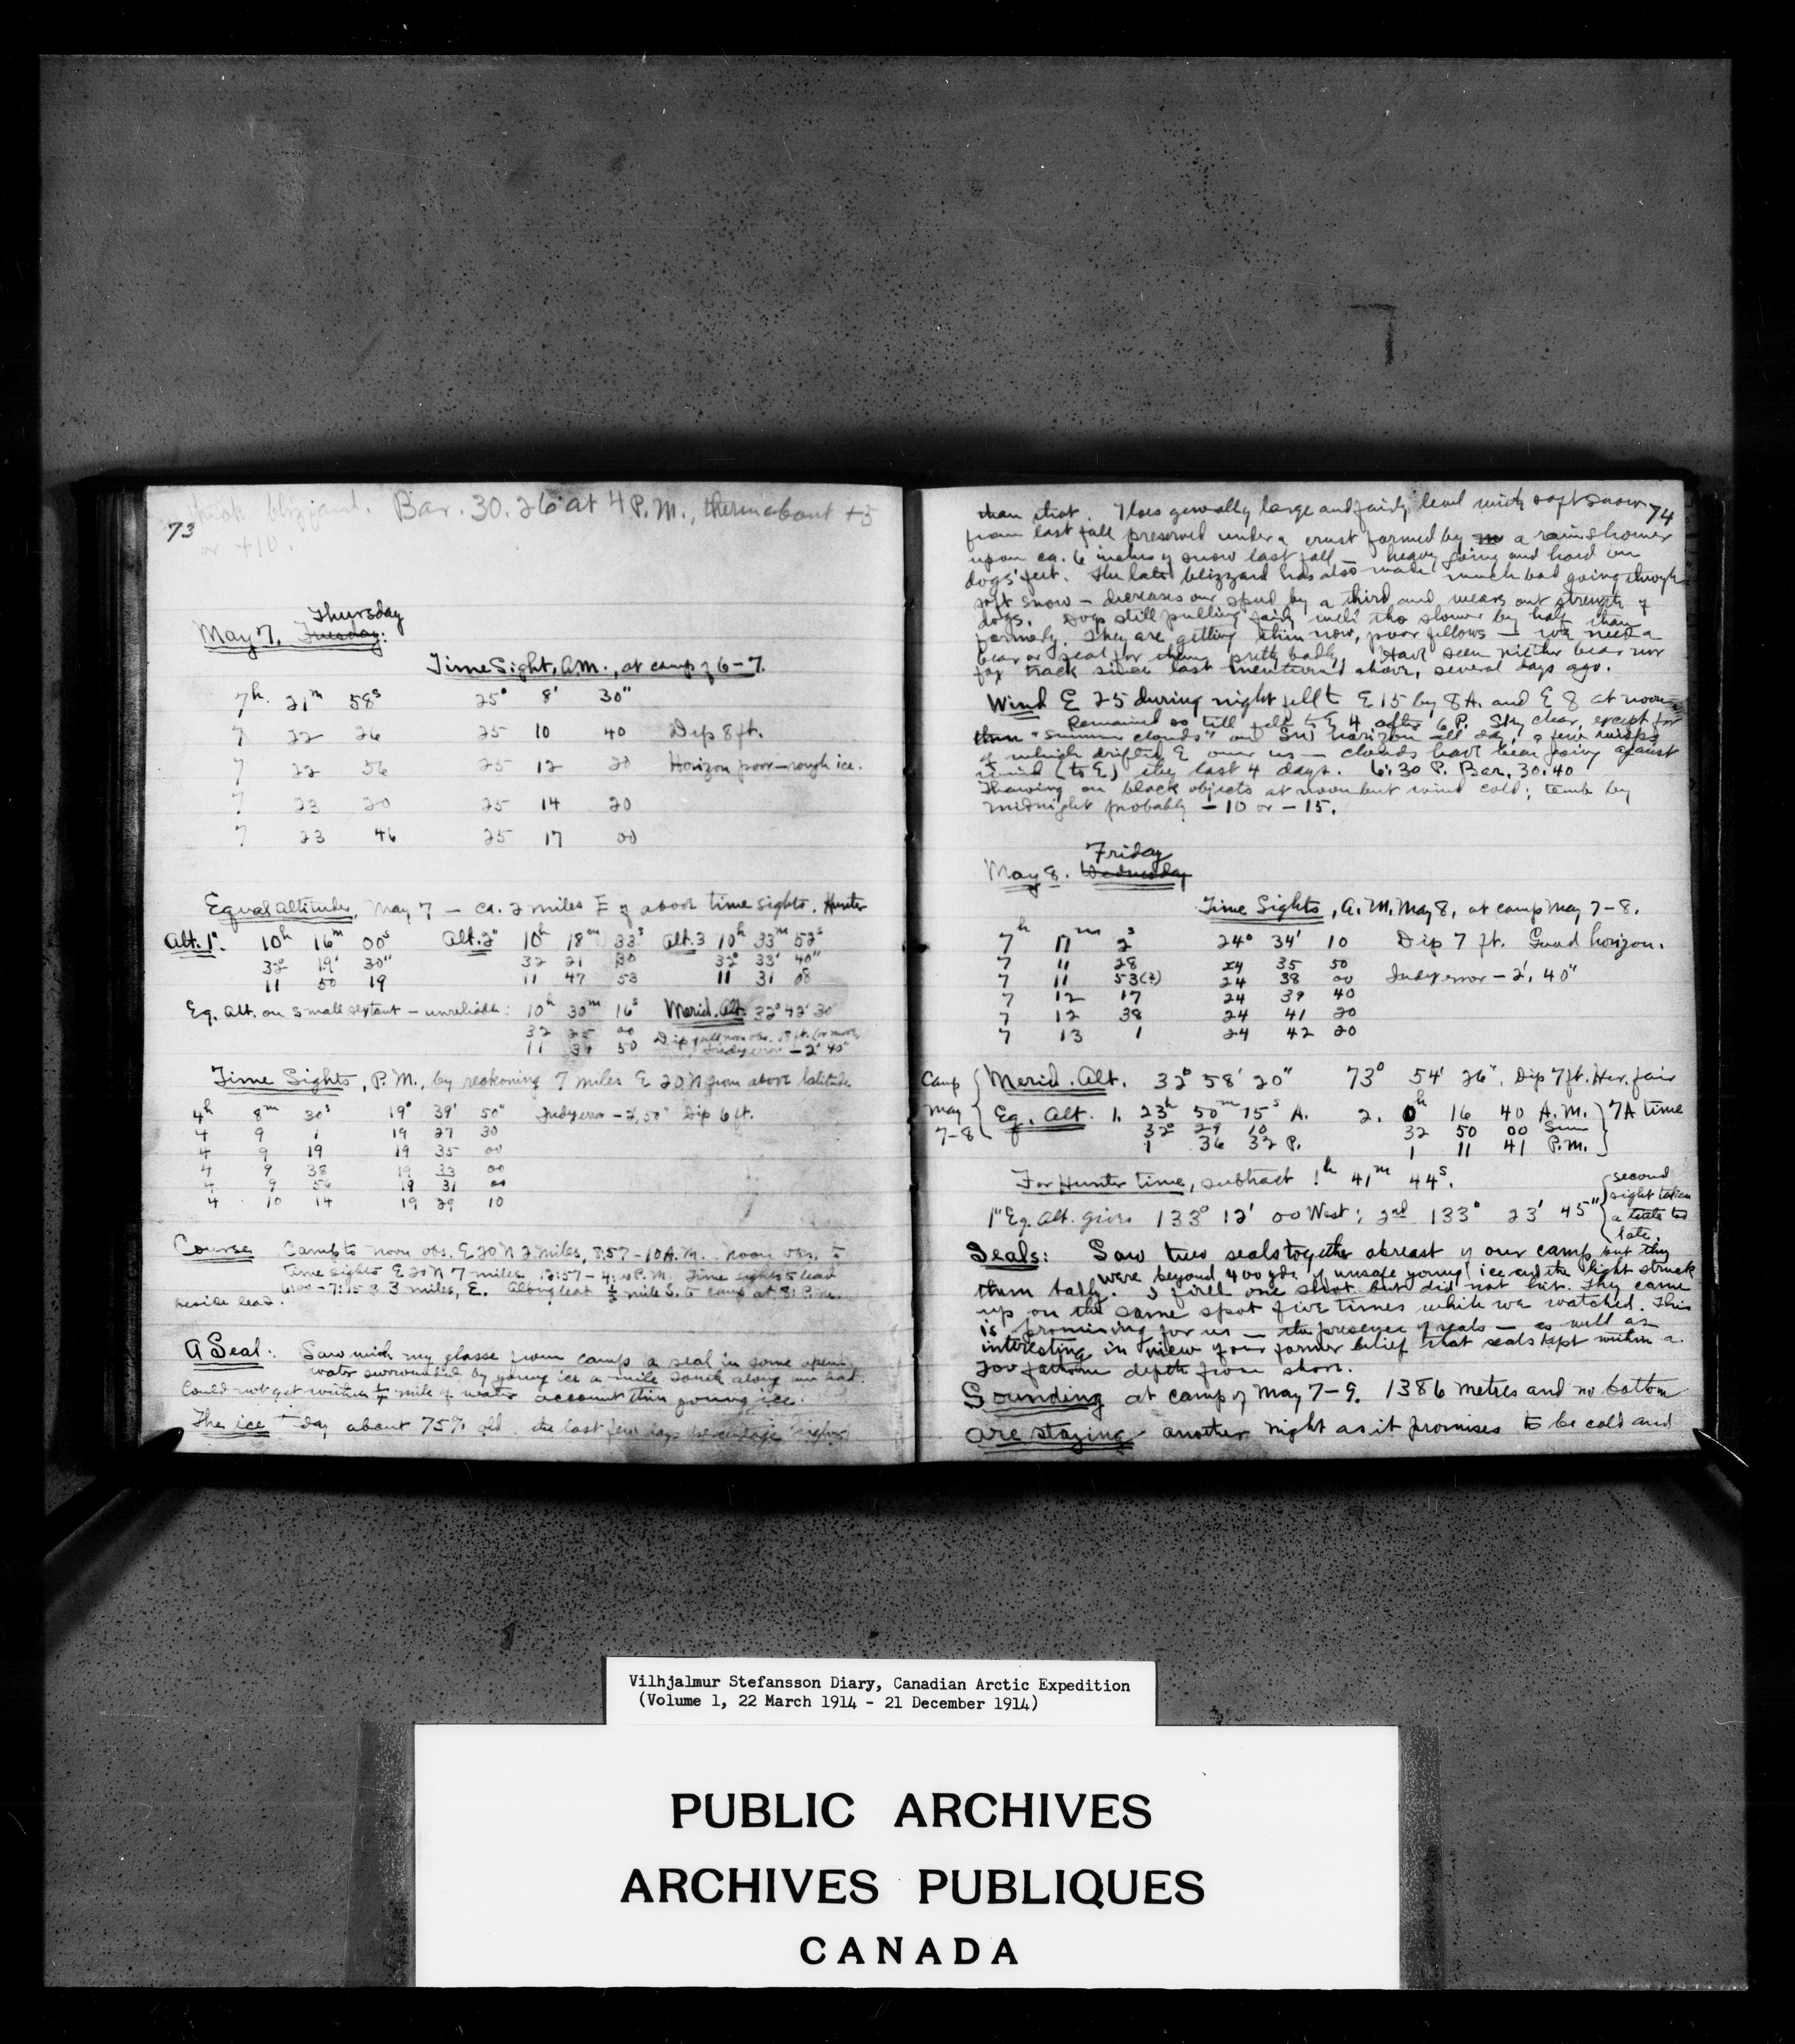 73
thick blizzard. Bar. 30.26 at 4 P.M., therm about +5
or +10.
Thursday
May 7, Tuesday:
Time Sight, A.M., at camp of 6-7.
7h 21m 58s 25° 8' 30"
7 22 26 25 10 40 Dip 8 ft.
7 22 56 25 12 20 Horizon poor—rough ice.
7 23 20 25 14 20
7 23 46 25 17 00
Equal Altitudes, May 7 — ca. 2 miles E of above time sights. Hunter
Alt. 1". 10h 16m 00s Alt. 2" 10h 18m 33s Alt. 3 10h 33m 52s
32° 19' 30" 32 21 30 32° 33' 40"
11 50 19 11 47 53 11 31 08
Eq. Alt. on small sextant — unreliable: 10h 30m 16s Merid. Alt. 32° 42' 30"
32 25 00 Dip of all noon obs. 8 ft. (or more)
11 34 50 Index error — 2' 40"
Time Sights, P.M., by reckoning 7 miles E 20 N from above latitude
4h 8m 30s 19° 39' 50" Index error — 2', 50" Dip 6 ft.
4 9 1 19 37 30
4 9 19 19 35 00
4 9 38 19 33 00
4 9 56 19 31 00
4 10 14 19 29 10
Course Camp to noon obs. E 20 N 2 miles, 8:57 – 10 A.M. Noon obs. to
time sights E 20 N 7 miles, 12:57 – 4:10 P.M. Time sights to lead
– 7:15 P. 3 miles, E. Along lead ½ mile S. to camp at 8 P.M.
beside lead.
A Seal: Saw with my glasses from camp a seal in some open
water surrounded by young ice a mile south along our lead.
Could not get within ¼ mile of water account thin young ice.
The ice to-day about 75% old. the last few days percentage higher
74
than that. Floes generally large and fairly level with soft snow
from last fall preserved under a crust formed by a rain shower
upon ca. 6 inches of snow last fall — heavy going and hard on
dogs' feet. The late blizzard has also made much bad going through
soft snow — decreases our speed by a third and wears out strength of
dogs. Dogs still pulling fairly well tho slower by half than
formerly. They are getting thin now, poor fellows — we need a
bear or seal for them pretty badly. Have seen neither bear nor
fox track since last mentioned above, several days ago.
Wind E 25 during night fell to E 15 by 8 A. and E 8 at noon.
Remained so till fell to E 4 after 6 P. Sky clear, except for
then "summer clouds" on SW horizon all day, a few wisps
of which drifted E over us — clouds have been going against
wind (to E) the last 4 days. 6:30 P. Bar. 30.40
Thawing on black objects at noon but wind cold; temp by
midnight probably -10 or -15.
Friday
May 8. Wednesday
Time Sights, A.M. May 8, at camp May 7-8.
7h 11m 2s 24° 34' 10 Dip 7 ft. Good horizon.
7 11 28 24 35 50
7 11 53(?) 24 38 00 Index error — 2', 40"
7 12 17 24 39 40
7 12 38 24 41 20
7 13 1 24 42 20
Camp May 7-8
Merid. Alt. 32° 58' 20" 73° 54' 26". Dip 7 ft. Hor. fair
Eq. Alt. 1. 23h 50m 15s A. 2. 0h 16 40 A.M. 7A time
32° 29 10 32 50 00 Sun
1 36 32 P. 1 11 41 P.M.
For Hunter time, subtract 1h 41m 44s.
1" Eq. Alt. gives 133° 12' 00 West; 2nd 133° 23' 45"
second
sight taken
a trifle too
late.
Seals: Saw two seals together abreast of our camp but they
were beyond 400 yds. of unsafe young ice and the light struck
them badly. I fired one shot but did not hit. They came
up on the same spot five times while we watched. This
is promising for us — the presence of seals — as well as
interesting in view of our former belief that seals kept within a
200 fathom depth from shore.
Sounding at camp of May 7-9. 1386 metres and no bottom
Are staying another night as it promises to be cold and
Vilhjalmur Stefansson Diary, Canadian Arctic Expedition
(Volume 1, 22 March 1914 - 21 December 1914)
PUBLIC ARCHIVES
ARCHIVES PUBLIQUES
CANADA